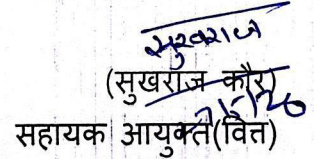 सुखराज
(सुखराज कौर)
सहायक आयुक्त(वित्त)